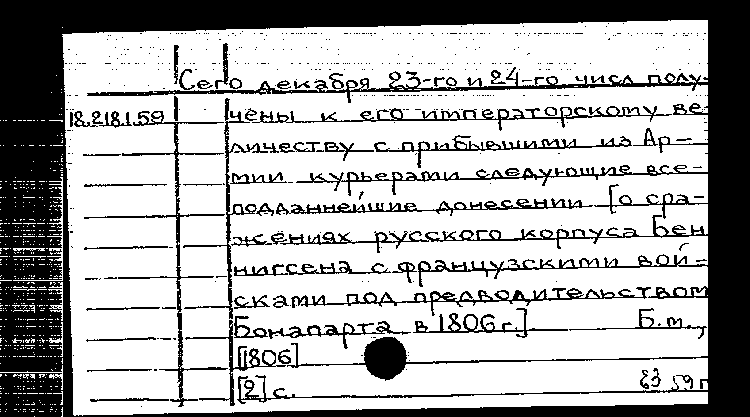 Сего декабря 23-го и 24-го числ полу-
18.218.1.59 чены к его императорскому ве
личеству с прибывшими из Ар-
мии курьерами следующие все-
подданнейшие донесении [о сра-
жениях русского корпуса Бен
нигсена с французскими вой-
сками под предводительством
Бонапарта в 1806 г.] Б.м.,
[1806]
[2] с.